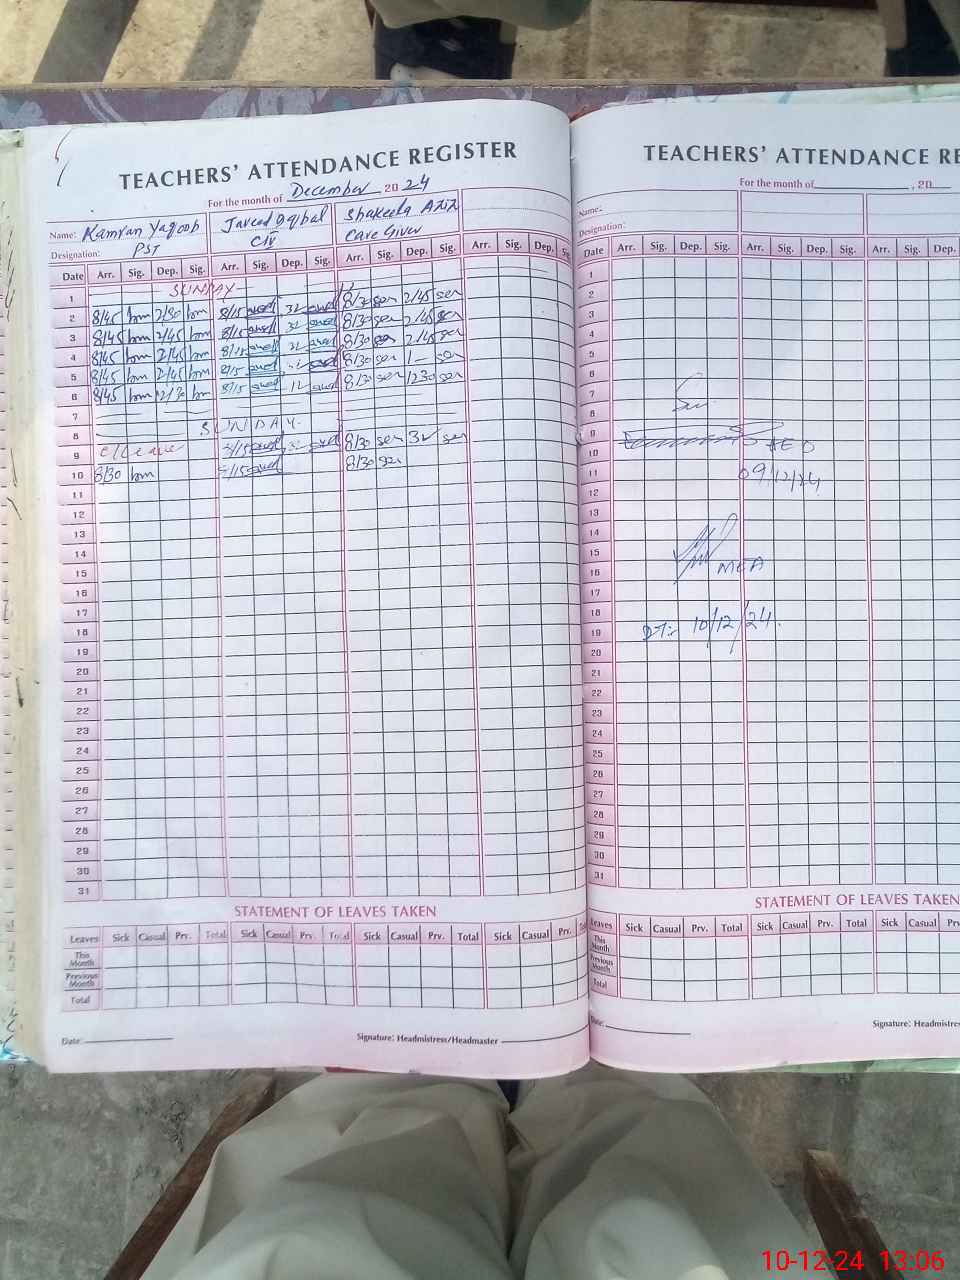 TEACHERS' ATTENDANCE REGISTER
For the month of December 2024
Name: Kamran Yaqoob Javeed Iqbal Shakeela Aziz
Designation: PST Care Giver
Date Arr. Sig. Dep. Sig. Arr. Sig. Dep. Sig. Arr. Sig. Dep. Sig. Arr. Sig. Dep. Sig.
1 SUNDAY
2 8/45 2/30 8/15 8/30 2/45
3 8/45 2/45 8/15 8/30 2/45
4 8/45 2/45 8/15 8/30 2/45
5 8/45 2/45 8/15 8/30 1
6 8/45 12/30 8/15 12 8/30 1230
7
8 SUNDAY
9 C/Leave 8/30
10 8/30 8/30
11
12
13
14
15
16
17
18
19
20
21
22
23
24
25
26
27
28
29
30
31
STATEMENT OF LEAVES TAKEN
Leaves Sick Casual Prv. Total Sick Casual Prv. Total Sick Casual Prv. Total Sick Casual Prv.
This Month
Previous Month
Total
Date:
Signature: Headmistress/Headmaster
TEACHERS' ATTENDANCE RE
For the month of , 20
Name:
Designation:
Date Arr. Sig. Dep. Sig. Arr. Sig. Dep. Sig. Arr. Sig. Dep.
1
2
3
4
5
6
7
8
9
10
11 09/12/24
12
13
14
15
16 MEA
17
18
19 DT:- 10/12/24.
20
21
22
23
24
25
26
27
28
29
30
31
STATEMENT OF LEAVES TAKEN
Leaves Sick Casual Prv. Total Sick Casual Prv. Total Sick Casual
This Month
Previous Month
Total
Date:
Signature: Headmistres
10-12-24 13:06